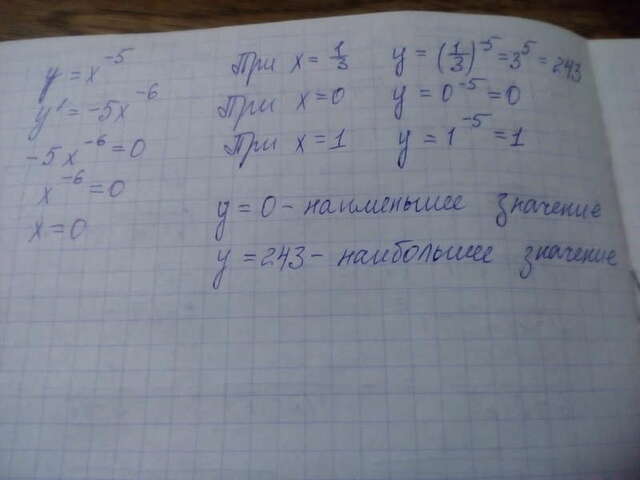 y = x^-5
y' = -5x^-6
-5x^-6 = 0
x^-6 = 0
x = 0
При x = 1/3 y = (1/3)^-5 = 3^5 = 243
При x = 0 y = 0^-5 = 0
При x = 1 y = 1^-5 = 1
y = 0 - наименьшее значение
y = 243 - наибольшее значение